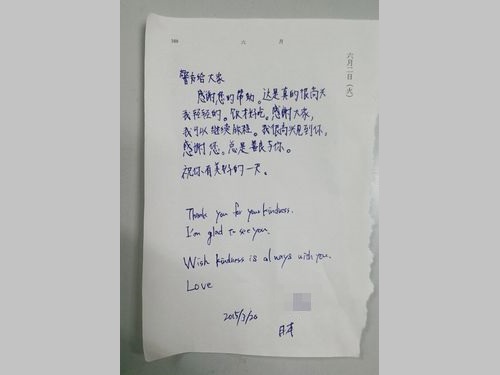 160 六 月
六月二日(火)
警察给大家
感谢您的帮助。这是真的很高兴
我轻轻的。饮才好吃。感谢大家,
我可以继续旅程。我很高兴见到你,
感谢您。总是善良与你。
祝你有美好的一天。
Thank you for your kindness.
I'm glad to see you.
Wish kindness is always with you.
Love
2015/3/26